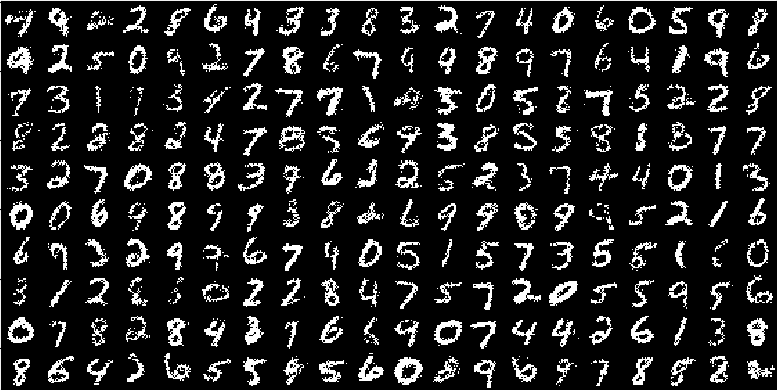 7 9 2 2 8 6 4 3 3 8 3 2 7 4 0 6 0 5 9 8
9 2 5 0 9 2 7 8 6 7 9 9 8 9 7 6 4 1 9 6
7 3 1 7 3 8 2 7 7 1 9 5 0 5 2 7 5 2 2 8
8 2 8 8 2 4 7 8 5 6 9 3 8 5 5 8 1 3 7 7
3 2 7 0 8 8 3 9 6 3 2 5 2 3 7 4 4 0 1 3
0 0 6 9 8 9 9 3 8 2 6 9 9 0 9 9 5 2 1 6
6 9 3 2 9 9 6 7 4 0 5 1 5 7 3 5 5 1 6 0
3 1 2 8 8 0 2 2 8 4 7 5 7 2 0 5 5 9 5 6
0 7 8 2 8 4 3 7 6 6 9 0 7 4 4 2 6 1 3 8
8 6 4 3 6 5 5 9 5 6 0 8 9 6 9 7 8 8 2